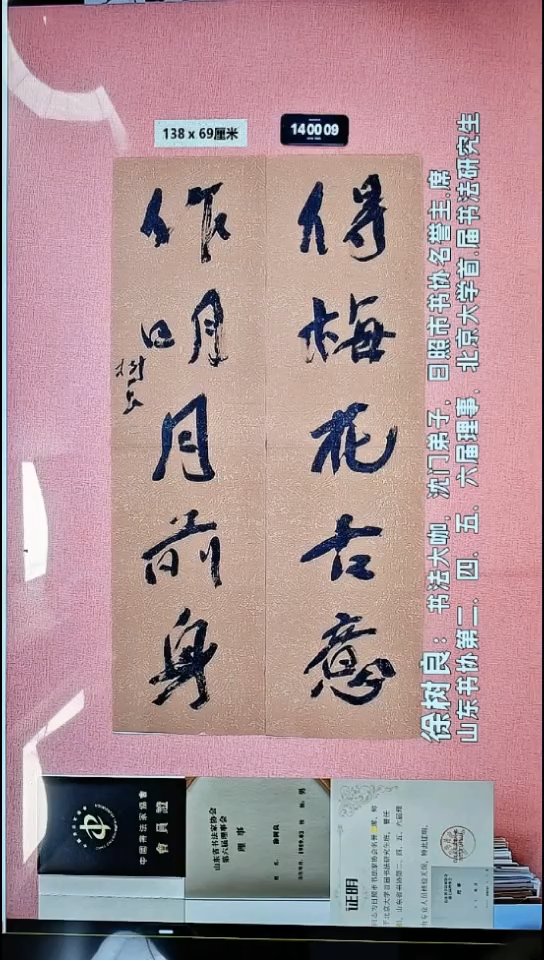 138 x 69厘米
14 00 09
得梅花古意
作明月前身
树良
徐树良：书法大咖，沈门弟子，日照市书协名誉主.席
山东书协第二.四.五.六届理事，北京大学首.届书法研究生
中國書法家協會
會員證
山东省书法家协会
第六届理事会
理事
徐树良
证明